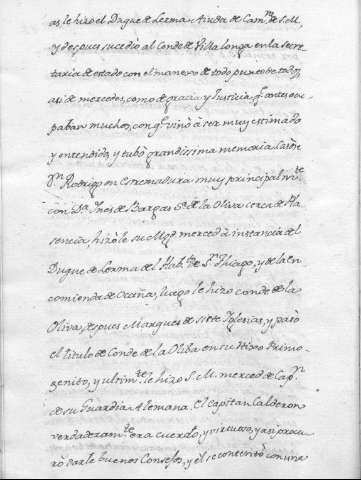 as le hizo el Duque de Lerma Aiuda de Cam.ª de S.M.
y despues sucedio al Conde de Villa longa en la secre
taria de estado con el manexo de todo punto de todas,
asi de mercedes, como de gracia y Justicia, q. antes ocu
paban muchos, con q. vino à ser muy estimado
y entendido, y tubo grandissima memoria. Casose
D.n Rodrigo en Estremadura muy principalm.te
con D.a Ines de Bargas S.a de la Oliva cerca de Pla
sencia, hizole su Mag.d merced à instancia del
Duque de Lerma del Hab.to de S.n Thiago, y de la en
comienda de Ocaña, luego le hizo conde de la
Oliva, despues Marques de siete Iglesias, y passò
el titulo de Conde de la Oliba en su Hixo Primo
genito, y ultim.te le hizo S. M. merced de Cap.n
de su Guardia Alemana. El capitan Calderon
verdaderam.te era cuerdo, y virtuoso, y asi procu
rò darle buenos Consejos, y èl se contentò con una